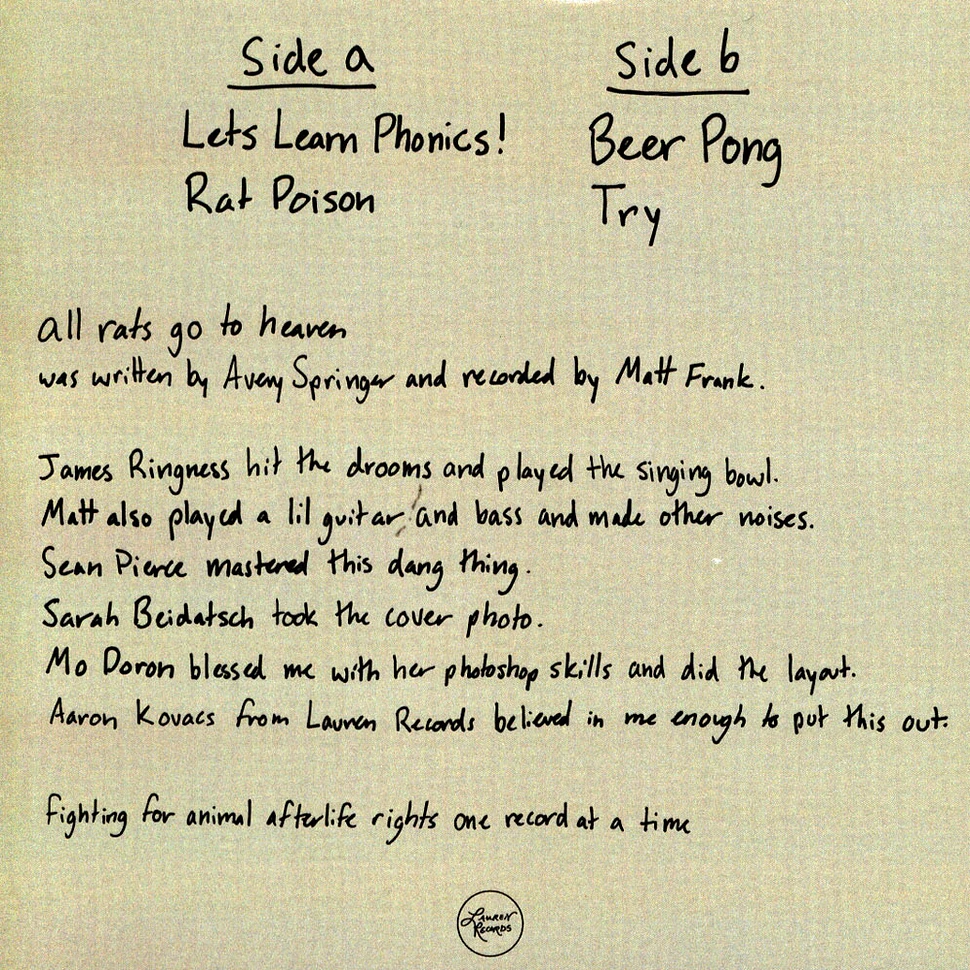 Side a
Lets Learn Phonics!
Rat Poison
Side b
Beer Pong
Try
all rats go to heaven
was written by Avery Springer and recorded by Matt Frank.
James Ringness hit the drooms and played the singing bowl.
Matt also played a lil guitar and bass and made other noises.
Sean Pierce mastered this dang thing.
Sarah Beidatsch took the cover photo.
Mo Doron blessed me with her photoshop skills and did the layout.
Aaron Kovacs from Lauren Records believed in me enough to put this out.
fighting for animal afterlife rights one record at a time
Lauren
Records